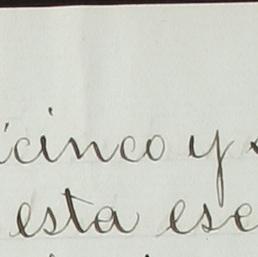 cinco y
esta ese